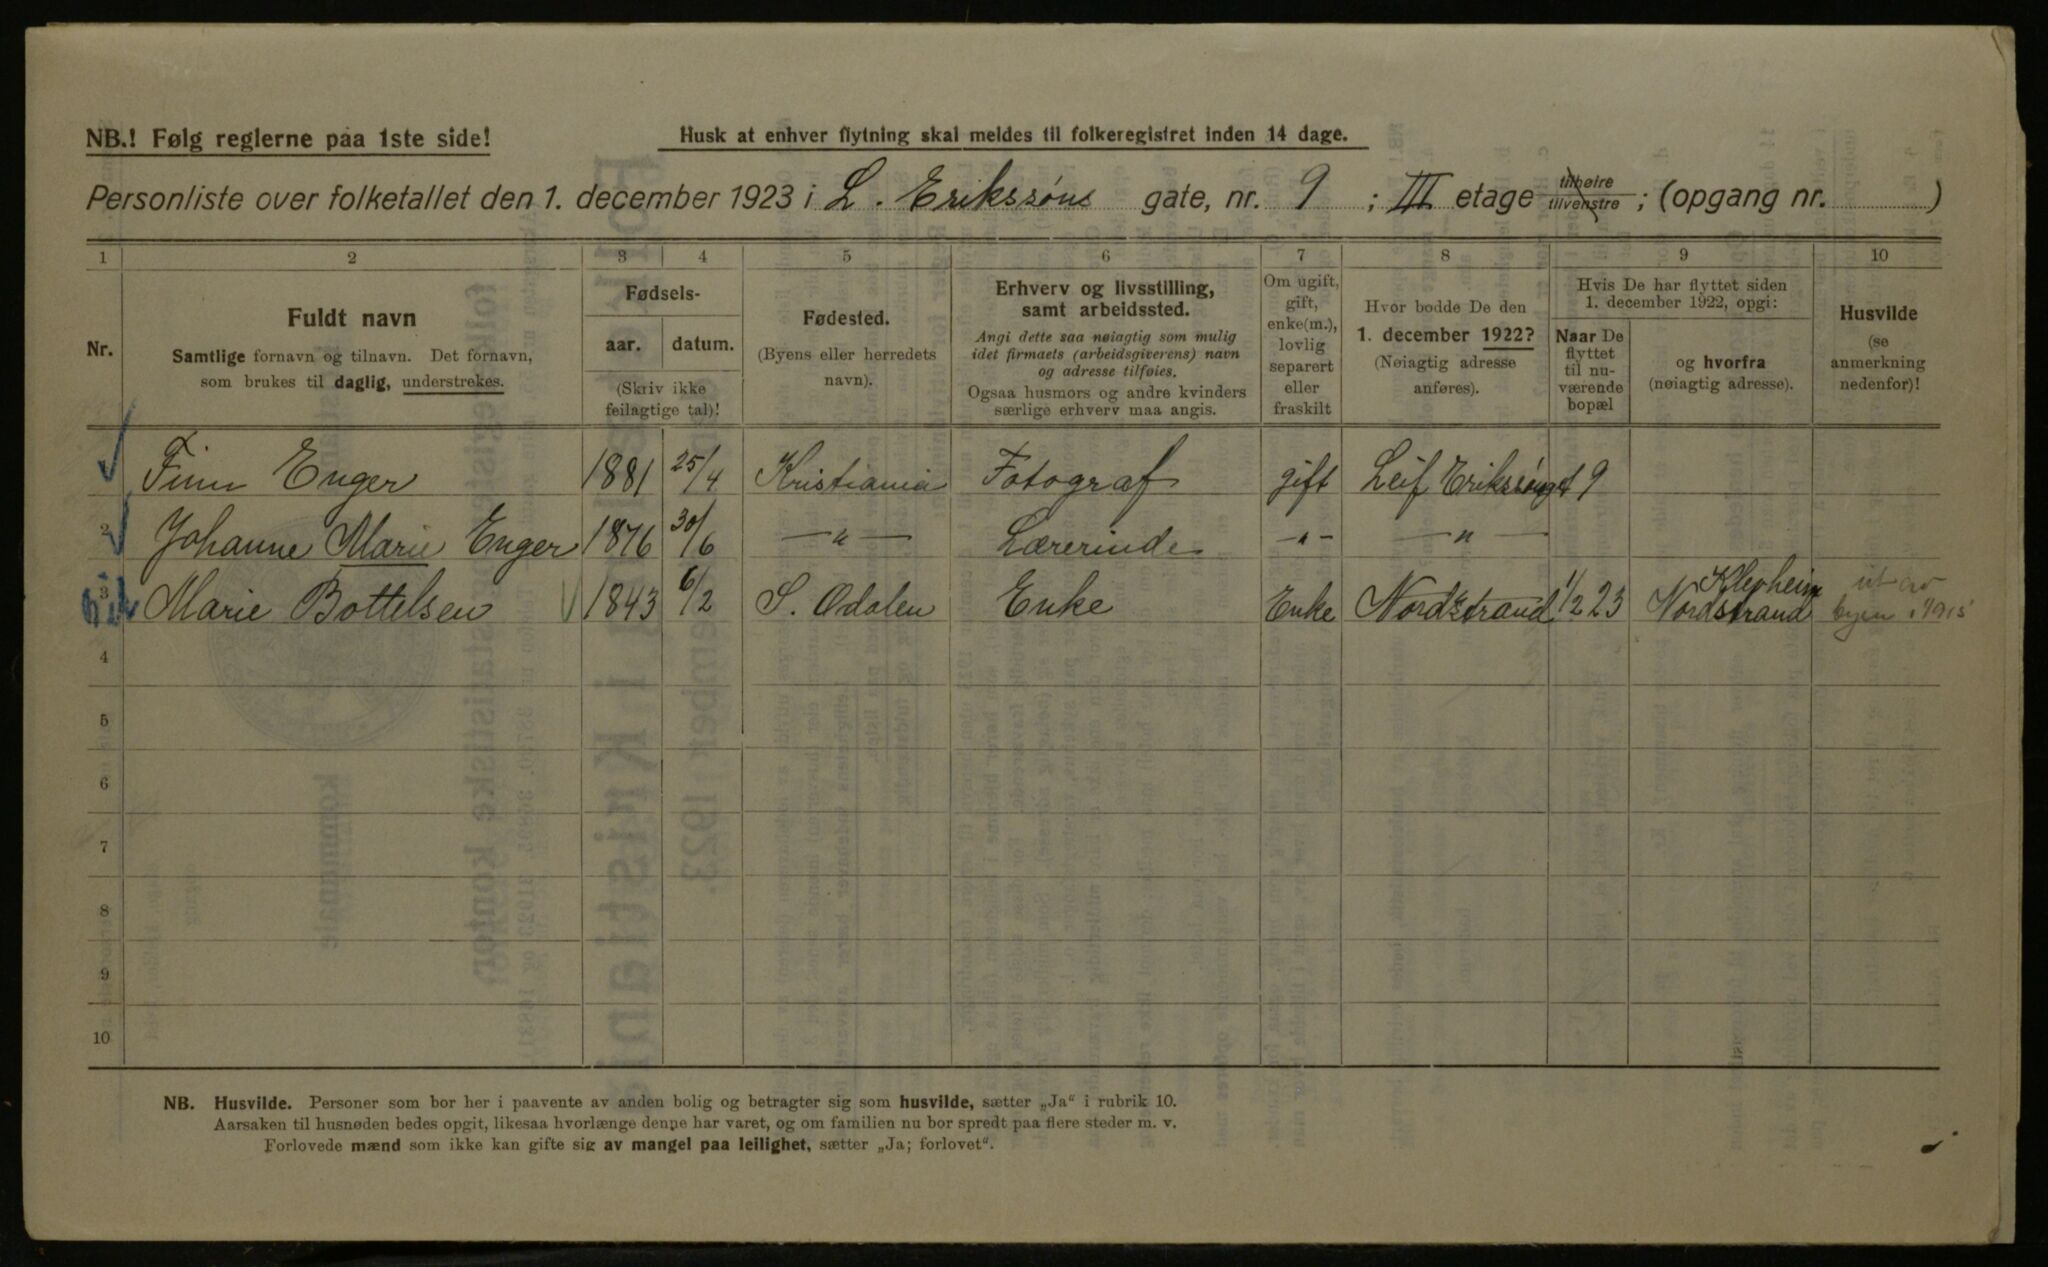 NB.! Følg reglerne paa 1ste side!
Husk at enhver flytning skal meldes til folkeregistret inden 14 dage.
Personliste over folketallet den 1. december 1923 i L. Erikssøns gate, nr. 9 ; III etage tilhøire tilvenstre ; (opgang nr. )
1 2 3 4 5 6 7 8 9 10
Nr.
Fuldt navn
Samtlige fornavn og tilnavn. Det fornavn,
som brukes til daglig, understrekes.
Fødsels-
aar. datum.
(Skriv ikke
feilagtige tal)!
Fødested.
(Byens eller herredets
navn).
Erhverv og livsstilling,
samt arbeidssted.
Angi dette saa nøiagtig som mulig
idet firmaets (arbeidsgiverens) navn
og adresse tilføies.
Ogsaa husmors og andre kvinders
særlige erhverv maa angis.
Om ugift,
gift,
enke(m.),
lovlig
separert
eller
fraskilt
Hvor bodde De den
1. december 1922?
(Nøiagtig adresse
anføres).
Hvis De har flyttet siden
1. december 1922, opgi:
Naar De
flyttet
til nu-
værende
bopæl
og hvorfra
(nøiagtig adresse).
Husvilde
(se
anmerkning
nedenfor)!
Finn Enger 1881 25/4 Kristiania Fotograf gift Leif Erikssøngt 9
2 Johanne Marie Enger 1876 30/6 — " — Lærerinde — " — — " —
3 Marie Bottelsen 1843 6/2 S. Odalen Enke Enke Nordstrand 1/2 23 Klepheim Nordstrand ut av byen i 1915
4
5
6
7
8
9
10
NB. Husvilde. Personer som bor her i paavente av anden bolig og betragter sig som husvilde, sætter „Ja“ i rubrik 10.
Aarsaken til husnøden bedes opgit, likesaa hvorlænge denne har varet, og om familien nu bor spredt paa flere steder m. v.
Forlovede mænd som ikke kan gifte sig av mangel paa leilighet, sætter „Ja; forlovet“.